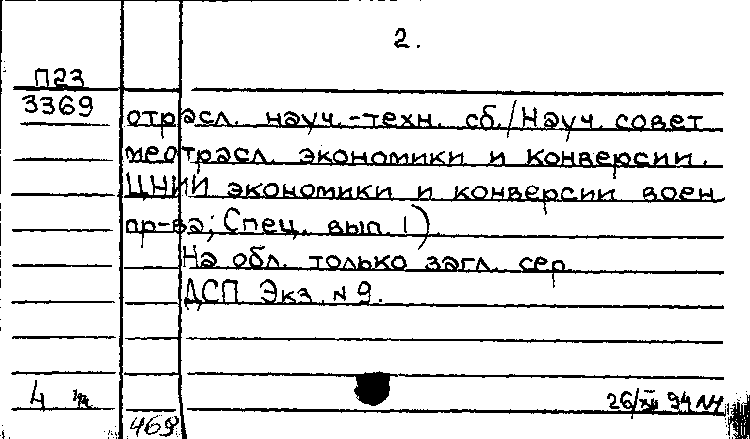 2.
П23
3369
отрасл. науч.-техн. сб./Науч. совет
меотрасл. экономики и конверсии.
ЦНИИ экономики и конверсии воен
пр-ва; Спец. вып. 1).
На обл. только загл. сер
ДСП Экз. N 9.
4
26/XII 94
469